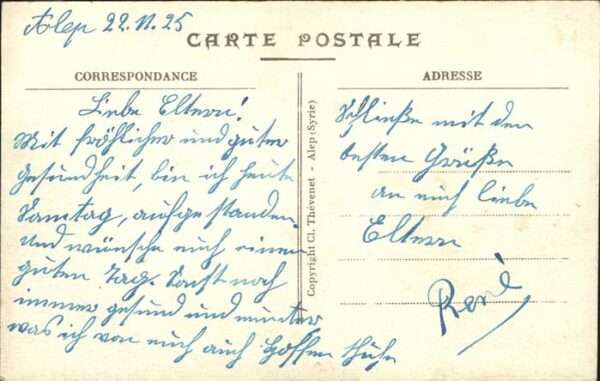 Alep 22.11.25
CARTE POSTALE
CORRESPONDANCE
ADRESSE
Liebe Eltern!
Mit fröhlicher und guter
gesundheit, bin ich heute
Samstag, aufgestanden.
Und wünsche euch einen
guten Tag. Sonst noch
immer gesund und munter
was ich von euch auch hoffen thuhe
Copyright Cl. Thévenet - Alep (Syrie)
Schließe mit den
besten Grüßen
an euch liebe
Eltern
René